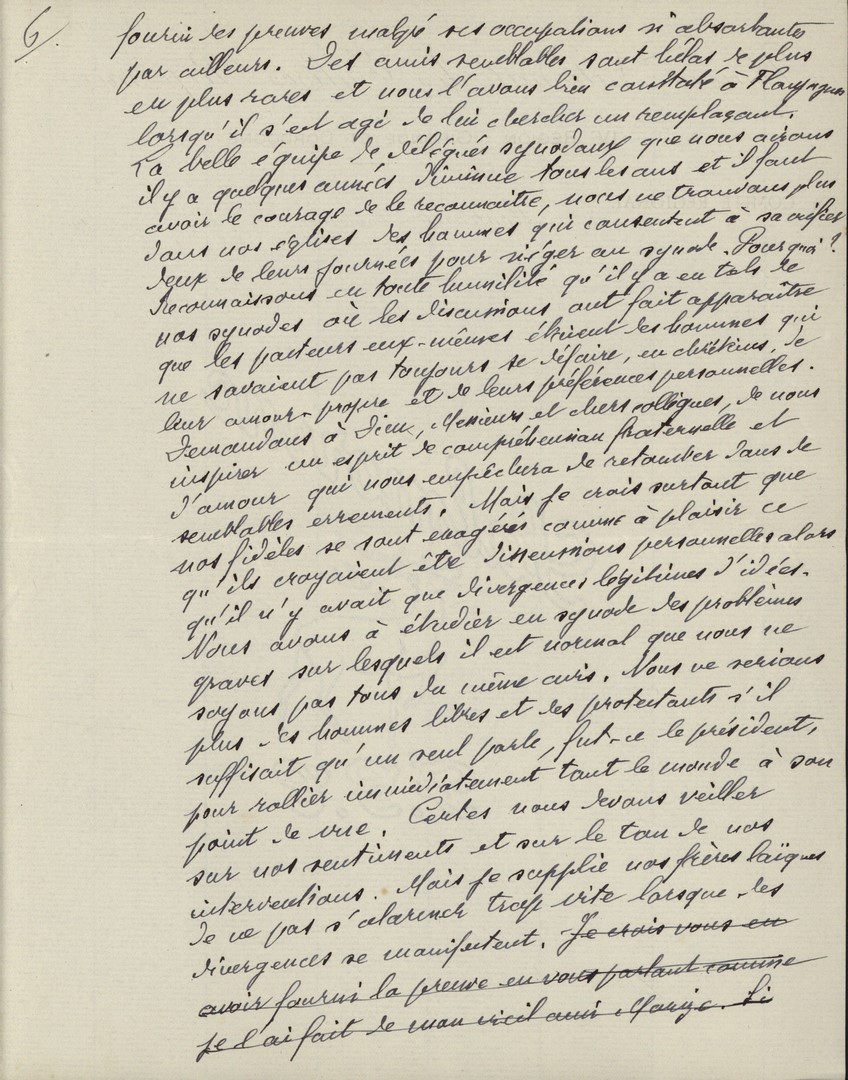 6.
fourni des preuves malgré ses occupations si absorbantes
par ailleurs. Des amis semblables sont hélas de plus
en plus rares et nous l'avons bien constaté à
lorsqu'il s'est agi de lui chercher un remplaçant.
La belle équipe de délégués synodaux que nous avions
il y a quelques années diminue tous les ans et il faut
avoir le courage de le reconnaitre, nous ne trouvons plus
dans nos églises des hommes qui consentent à sacrifier
deux de leurs journées pour siéger au synode. Pourquoi ?
Reconnaissons en toute humilité qu'il y a eu tels de
nos synodes où les discussions ont fait apparaître
que les pasteurs eux-mêmes étaient des hommes qui
ne savaient pas toujours se défaire, en chrétiens, de
leur amour-propre et de leurs préférences personnelles.
Demandons à Dieu, Messieurs et chers collègues, de nous
inspirer un esprit de compréhension fraternelle et
d'amour qui nous empêchera de retomber dans de
semblables errements. Mais je crois surtout que
nos fidèles se sont exagérés comme à plaisir ce
qu'ils croyaient être dissensions personnelles alors
qu'il n'y avait que divergences légitimes d'idées.
Nous avons à étudier en synode des problèmes
graves sur lesquels il est normal que nous ne
soyons pas tous du même avis. Nous ne serions
plus des hommes libres et des protestants s'il
suffisait qu'un seul parle, fut-ce le président,
pour rallier immédiatement tout le monde à son
point de vue. Certes nous devons veiller
sur nos sentiments et sur le ton de nos
interventions. Mais je supplie nos frères laïques
de ne pas s'alarmer trop vite lorsque des
divergences se manifestent. Je crois vous en
avoir fourni la preuve en vous parlant comme
je l'ai fait de mon vieil ami Si